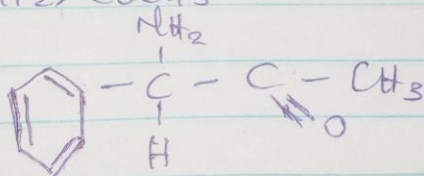 NH2
C - C - CH3
O
H